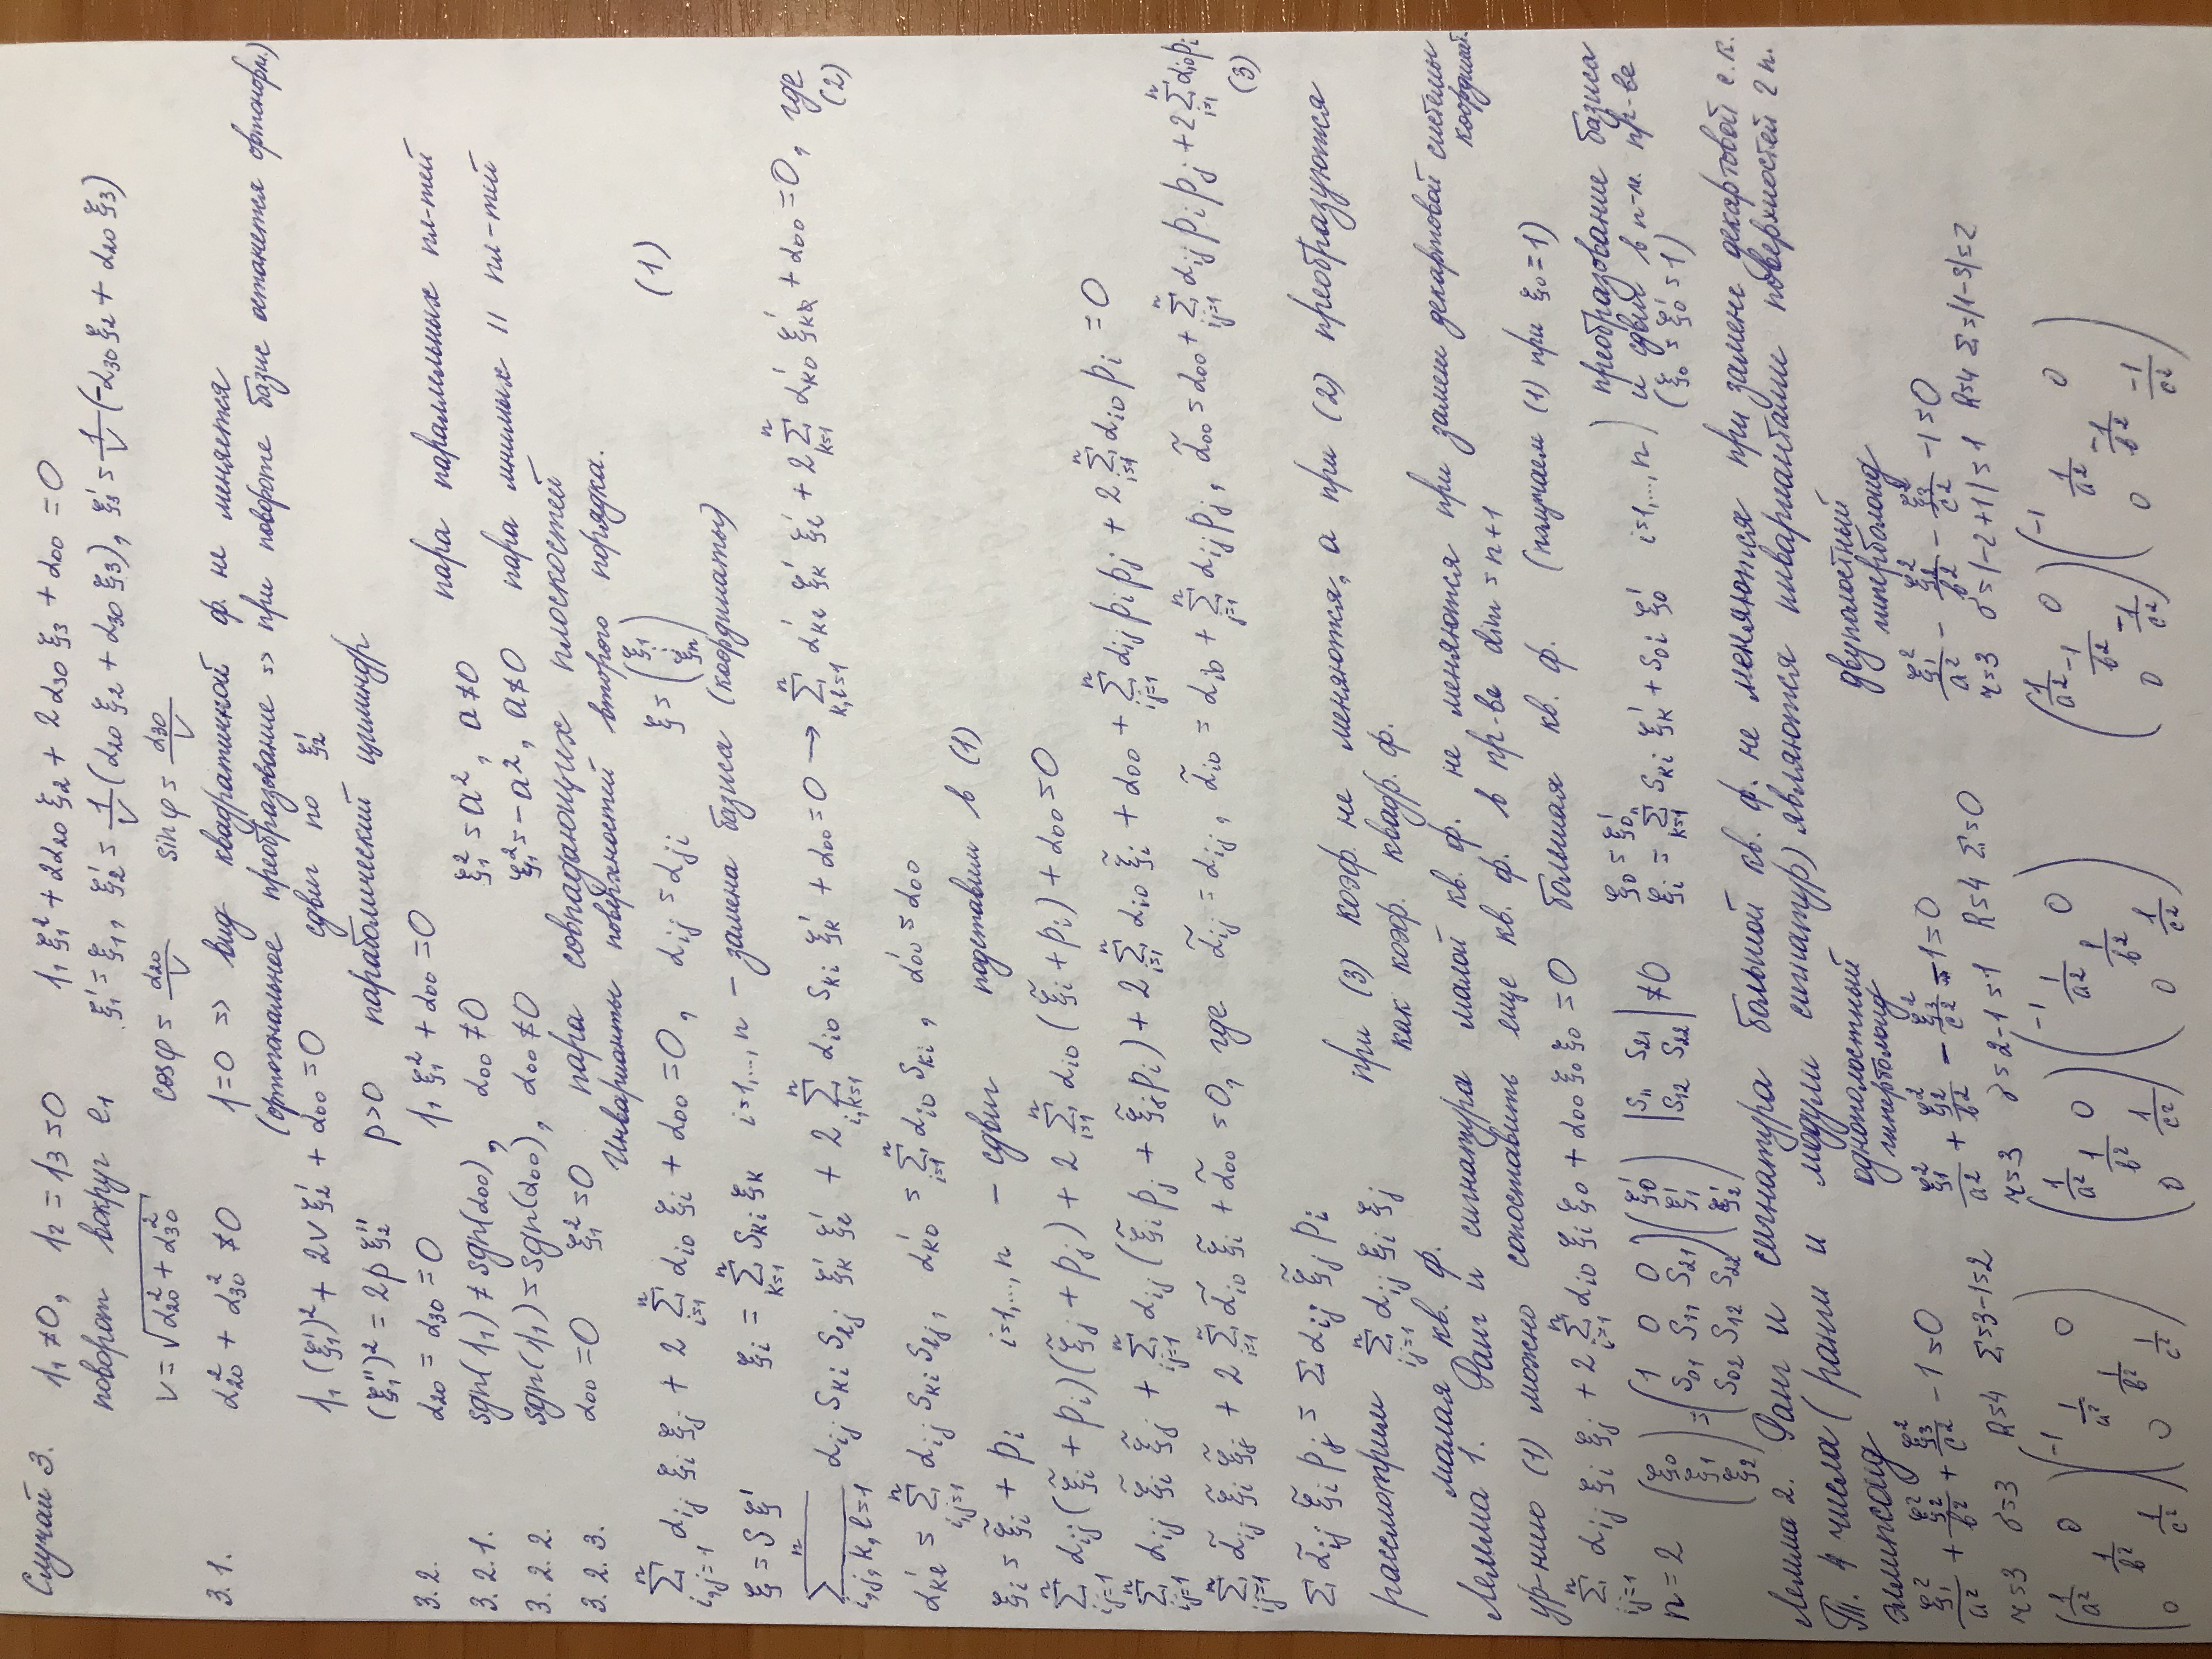 Случай 3. λ₁ ≠ 0, λ₂ = λ₃ = 0 λ₁ξ₁² + 2α₂₀ξ₂ + 2α₃₀ξ₃ + α₀₀ = 0
поворот вокруг e₁ ξ₁' = ξ₁, ξ₂' = 1/ν (α₂₀ξ₂ + α₃₀ξ₃), ξ₃' = 1/ν (-α₃₀ξ₂ + α₂₀ξ₃)
ν = √(α₂₀² + α₃₀²) cosφ = α₂₀/ν sinφ = α₃₀/ν
3.1. α₂₀² + α₃₀² ≠ 0 λ = 0 => вид квадратичной ф. не меняется
(ортогональное преобразование => при повороте базис останется ортонорм.)
λ₁(ξ₁')² + 2νξ₂' + α₀₀ = 0 сдвиг по ξ₂'
(ξ₁'')² = 2pξ₂'' p>0 параболический цилиндр
3.2. α₂₀ = α₃₀ = 0 λ₁ξ₁² + α₀₀ = 0
3.2.1. sgn(λ₁) ≠ sgn(α₀₀), α₀₀ ≠ 0 ξ₁² = a², a ≠ 0 пара параллельных пл-тей
3.2.2. sgn(λ₁) = sgn(α₀₀), α₀₀ ≠ 0 ξ₁² = -a², a ≠ 0 пара мнимых || пл-тей
3.2.3. α₀₀ = 0 ξ₁² = 0 пара совпадающих плоскостей
Инварианты поверхностей второго порядка.
∑ⁿ_{i,j=1} α_{ij} ξ_i ξ_j + 2 ∑ⁿ_{i=1} α_{i0} ξ_i + α₀₀ = 0, α_{ij} = α_{ji} ξ = (ξ₁ ⋮ ξ_n) (1)
ξ = S ξ' ξ_i = ∑ⁿ_{k=1} s_{ki} ξ_k i=1,...,n – замена базиса (координаты)
∑ⁿ_{i,j,k,l=1} α_{ij} s_{ki} s_{lj} ξ_k' ξ_l' + 2 ∑ⁿ_{i,k=1} α_{i0} s_{ki} ξ_k' + α₀₀ = 0 → ∑ⁿ_{k,l=1} α'_{kl} ξ_k' ξ_l' + 2 ∑ⁿ_{k=1} α'_{k0} ξ_k' + α₀₀ = 0, где
(2)
α'_{kl} = ∑ⁿ_{i,j=1} α_{ij} s_{ki} s_{lj}, α'_{k0} = ∑ⁿ_{i=1} α_{i0} s_{ki}, α'₀₀ = α₀₀
ξ_i = ξ̃_i + p_i i=1,...,n – сдвиг подставим в (1)
∑ⁿ_{ij=1} α_{ij} (ξ̃_i + p_i)(ξ̃_j + p_j) + 2 ∑ⁿ_{i=1} α_{i0} (ξ̃_i + p_i) + α₀₀ = 0
∑ⁿ_{ij=1} α_{ij} ξ̃_i ξ̃_j + ∑ⁿ_{ij=1} α_{ij} (ξ̃_i p_j + ξ̃_j p_i) + 2 ∑ⁿ_{i=1} α_{i0} ξ̃_i + α₀₀ + ∑ⁿ_{ij=1} α_{ij} p_i p_j + 2 ∑ⁿ_{i=1} α_{i0} p_i = 0
∑ⁿ_{ij=1} α̃_{ij} ξ̃_i ξ̃_j + 2 ∑ⁿ_{i=1} α̃_{i0} ξ̃_i + α̃₀₀ = 0, где α̃_{ij} = α_{ij}, α̃_{i0} = α_{i0} + ∑ⁿ_{j=1} α_{ij} p_j, α̃₀₀ = α₀₀ + ∑ⁿ_{ij=1} α_{ij} p_i p_j + 2 ∑ⁿ_{i=1} α_{i0} p_i
(3)
∑ α̃_{ij} ξ̃_i p_j = ∑ α_{ij} ξ̃_j p_i
рассмотрим ∑ⁿ_{ij=1} α_{ij} ξ_i ξ_j при (3) коэф. не меняются, а при (2) преобразуются
как коэф. квадр. ф.
малая кв. ф.
Лемма 1. Ранг и сигнатура малой кв. ф. не меняются при замене декартовой системы
координат.
ур-нию (1) можно сопоставить еще кв. ф. в пр-ве dim = n+1
∑ⁿ_{ij=1} α_{ij} ξ_i ξ_j + 2 ∑ⁿ_{i=1} α_{i0} ξ_i ξ₀ + α₀₀ ξ₀ ξ₀ = 0 большая кв. ф. (получаем (1) при ξ₀ = 1)
n = 2 (ξ₀ ξ₁ ξ₂) = (1 0 0 / s₀₁ s₁₁ s₂₁ / s₀₂ s₁₂ s₂₂) (ξ₀' ξ₁' ξ₂') |s₁₁ s₂₁ / s₁₂ s₂₂| ≠ 0 ξ₀ = ξ₀' ξ_i = ∑ⁿ_{k=1} s_{ki} ξ_k' + s_{0i} ξ₀' i=1,...,n ) преобразование базиса
и сдвиг в n-м. пр-ве
(ξ₀ = ξ₀' = 1)
Лемма 2. Ранг и сигнатура большой кв. ф. не меняются при замене декартовой с.к.
Т. 4 числа (ранги и модули сигнатур) являются инвариантами поверхностей 2 п.
эллипсоид однополостный гиперболоид двуполостный гиперболоид
ξ₁²/a² + ξ₂²/b² + ξ₃²/c² - 1 = 0 ξ₁²/a² + ξ₂²/b² - ξ₃²/c² - 1 = 0 ξ₁²/a² - ξ₂²/b² - ξ₃²/c² - 1 = 0
r=3 σ=3 R=4 Σ=3-1=2 r=3 σ=2-1=1 R=4 Σ=0 r=3 σ=|-2+1|=1 R=4 Σ=|1-3|=2
(1/a² 0 / 1/b² / 0 1/c²) (-1 / 1/a² 0 / 1/b² / 0 1/c²) (1/a² / 1/b² 0 / 0 1/c²) (-1 / 1/a² 0 / 1/b² / 0 1/c²) (1/a² 0 / -1/b² / 0 -1/c²) (-1 / 1/a² 0 / -1/b² / 0 -1/c²)